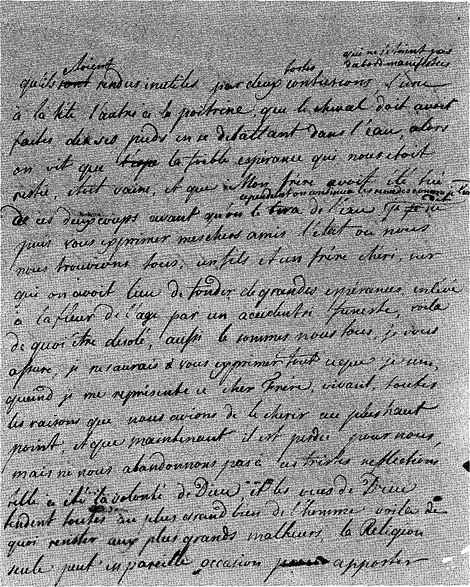 qui ne s'étoient pas
d'abord manifestées
étoient fortes
qu'ils sont rendus inutiles par deux contusions, l'une
à la tête l'autre à la poitrine, que le cheval doit avoir
faites de ses pieds en se debattant dans l'eau, alors
on vit que la foible esperance qui nous étoit
resté, étoit vaine, et que Mon frère avoit été tué
cependant on continua les remedes comme je l'ai dit
de ces deux coups avant qu'on le tira de l'eau Je ne
puis vous epprimer mes chers amis l'état ou nous
nous trouvions tous, un fils et un frère chéri, sur
qui on avoit lieu de fonder de grandes espérances, enlevé
à la fleur de l'age par un accident si funeste, voila
de quoi être desolé, aussi le sommes nous tous, je vous
assure, je ne saurais vous epprimer tout ce que je sens,
quand je me représente ce cher Frère, vivant, toutes
les raisons que nous avions de le cherir au plus haut
point, et que maintenant il est perdu pour nous,
mais ne nous abandonnons pas à ces tristes reflections
telle a été la volonté de Dieu, et les vues de Dieu
tendent toutes au plus grand bien de l'homme voila de
quoi resister aux plus grands malheurs, la Religion
seule peut en pareille occasion apporter